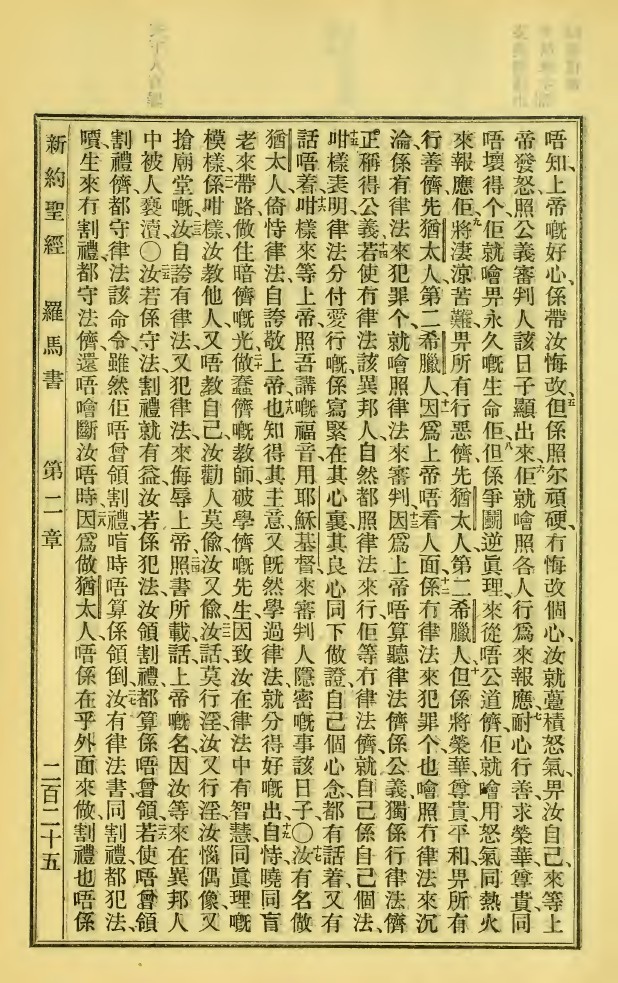 唔知、上帝嘅好心、係帶汝悔改、五但係照尔頑硬、冇悔改個心、汝就薹積怒氣、畀汝自己、來等上
帝發怒照公義審判人該日子顯出來、六佢就噲照各人行爲來報應、七耐心行善求榮華尊貴同
唔壞得个、佢就噲畀永久嘅生命佢、八但係爭鬬逆眞理、來從唔公道儕、佢就噲用怒氣同熱火
來報應佢、九將淒涼苦難、畀所有行惡儕、先猶太人、第二希臘人、十但係將榮華尊貴平和、畀所有
行善儕、先猶太人、第二希臘人、十一因爲上帝唔看人面、十二係冇律法來犯罪个、也噲照冇律法來沉
淪、係有律法來犯罪个、就噲照律法來審判、十三因爲上帝唔算聽律法儕係公義、獨係行律法儕
正稱得公義、十四若使冇律法該異邦人、自然都照律法來行、佢等冇律法儕、就自己係自己個法、
十五咁樣表明律法分付愛行嘅、係寫緊在其心裏、其良心同下做證、自己個心念、都有話着、又有
話唔着、十六咁樣來等上帝照吾講嘅福音、用耶穌基督、來審判人隱密嘅事該日子、〇十七汝有名做
猶太人、倚恃律法、自誇敬上帝、十八也知得其主意、又既然學過律法、就分得好嘅出、十九自恃曉同盲
老來帶路、做住暗儕嘅光、二十做蠢儕嘅教師、破學儕嘅先生、因致汝在律法中有智慧同眞理嘅
模樣、二一係咁樣汝教他人、又唔教自己、汝勸人莫偸、汝又偸、二二汝話莫行淫、汝又行淫、汝惱偶像、又
搶廟堂嘅、二三汝自誇有律法、又犯律法、來侮辱上帝、二四照書所載話、上帝嘅名、因汝等來在異邦人
中被人褻瀆、〇二五汝若係守法、割禮就有益、汝若係犯法、汝領割禮、都算係唔曾領、二六若使唔曾領
割禮儕、都守律法該命令、雖然佢唔曾領割禮、喧時唔算係領倒、二七汝有律法書、同割禮、都犯法、
噴生來冇割禮、都守法儕、還唔噲斷汝唔時、二八因爲做猶太人、唔係在乎外面來做、割禮也唔係
新約聖經　羅馬書　第二章　二百二十五